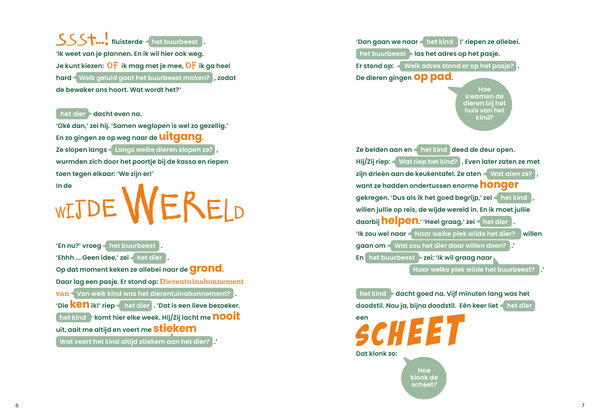 S.S.S.t...! fluisterde het buurbeest .
'Ik weet van je plannen. En ik wil hier ook weg.
Je kunt kiezen: OF ik mag met je mee, OF ik ga heel
hard Welk geluid gaat het buurbeest maken? , zodat
de bewaker ons hoort. Wat wordt het?'
het dier dacht even na.
'Oké dan,' zei hij. 'Samen weglopen is wel zo gezellig.'
En zo gingen ze op weg naar de uitgang.
Ze slopen langs Langs welke dieren slopen ze? ,
wurmden zich door het poortje bij de kassa en riepen
toen tegen elkaar: 'We zijn er!'
In de
WIJDE WERELD
'En nu?' vroeg het buurbeest .
'Ehhh ... Geen idee,' zei het dier .
Op dat moment keken ze allebei naar de grond.
Daar lag een pasje. Er stond op: Dierentuinabonnement
van Van welk kind was het dierentuinabonnement? .
'Die ken ik!' riep het dier . 'Dat is een lieve bezoeker.
het kind komt hier elke week. Hij/Zij lacht me nooit
uit, aait me altijd en voert me stiekem
Wat voert het kind altijd stiekem aan het dier? .'
6
'Dan gaan we naar het kind !' riepen ze allebei.
het buurbeest las het adres op het pasje.
Er stond op: Welk adres stond er op het pasje? .
De dieren gingen op pad.
Hoe
kwamen de
dieren bij het
huis van het
kind?
Ze belden aan en het kind deed de deur open.
Hij/Zij riep: Wat riep het kind? . Even later zaten ze met
zijn drieën aan de keukentafel. Ze aten Wat aten ze? ,
want ze hadden ondertussen enorme honger
gekregen. 'Dus als ik het goed begrijp,' zei het kind ,
willen jullie op reis, de wijde wereld in. En ik moet jullie
daarbij helpen.' 'Heel graag,' zei het dier .
'Ik zou wel naar Naar welke plek wilde het dier? willen
gaan om Wat zou het dier daar willen doen? .'
En het buurbeest zei: 'Ik wil graag naar
Naar welke plek wilde het buurbeest? .'
het kind dacht goed na. Vijf minuten lang was het
doodstil. Nou ja, bijna doodstil. Eén keer liet het dier
een
SCHEET
Dat klonk zo:
Hoe
klonk de
scheet?
7